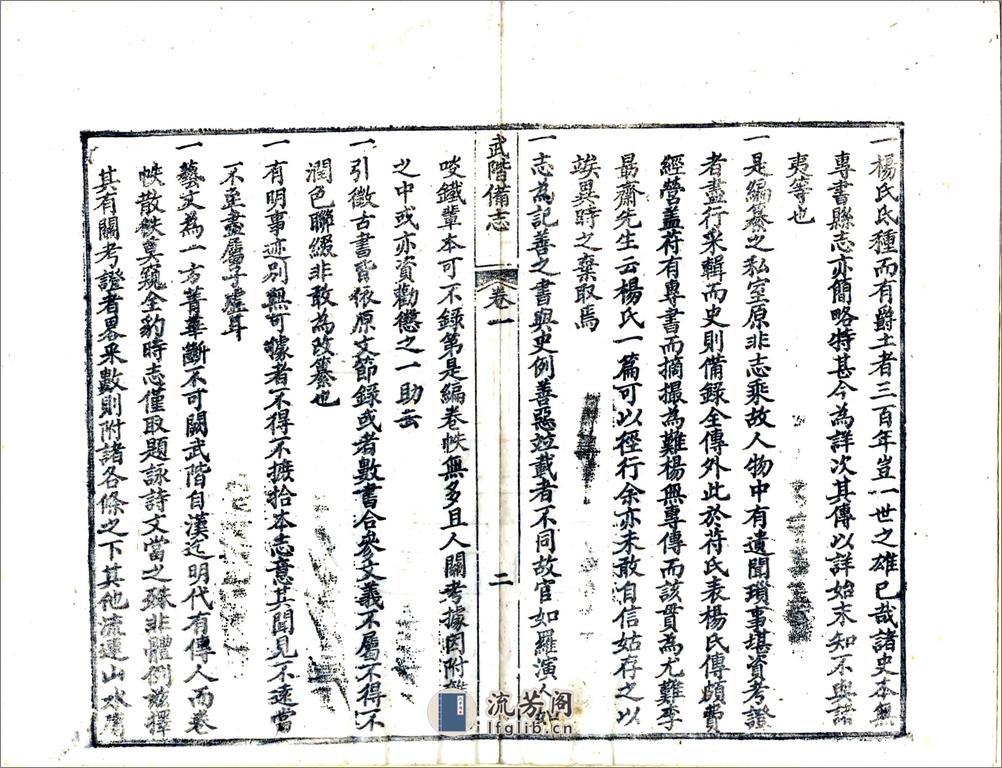 一楊氏氏種而有爵土者三百年豈一世之雄已哉諸史本無
專書縣志亦簡略特甚今為詳次其傳以詳始末知不與諸
夷等也
一是編纂之私室原非志乘故人物中有遺聞瑣事堪資考證
者盡行采輯而史則備錄全傳外此於苻氏表楊氏傳頗費
經營蓋苻有專書而摘撮為難楊無專傳而該貫為尤難李
勗齋先生云楊氏一篇可以徑行余亦未敢自信姑存之以
竢異時之棄取焉
一志為記善之書與史例善惡竝載者不同故官如羅演
武階備志
卷一
二
啖鐵輩本可不錄第是編卷帙無多且人關考據因附
之中或亦資勸懲之一助云
一引徵古書皆依原文節錄或者數書合參文義不屬不得不
潤色聯綴非敢為改纂也
一有明事迹別無可據者不得不摭拾本志意其聞見不遠當
不至盡屬子虛耳
一藝文為一方菁華斷不可闕武階自漢迄明代有傳人而卷
帙散軼莫窺全豹時志僅取題詠詩文當之殊非體例茲擇
其有關考證者畧采數則附諸各條之下其他流連山水
流芳阁
lfglib.cn